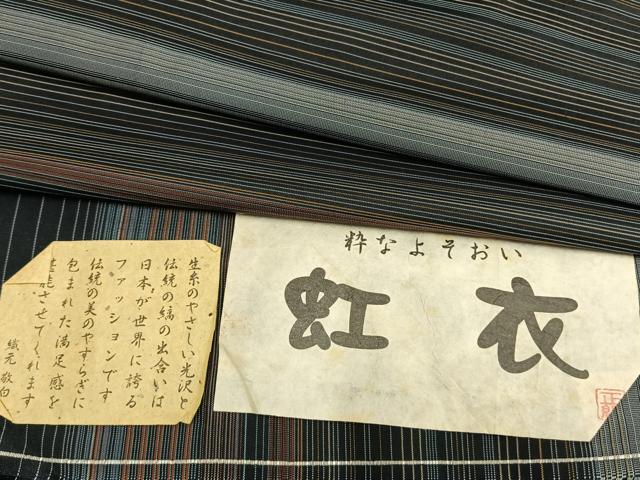 粋なよそおい
虹衣
生糸のやさしい光沢と
伝統の縞の出合いは
日本が世界に誇る
ファッションです
伝統の美のやすらぎに
包まれた満足感を
堪能させてくれます
織元 敬白